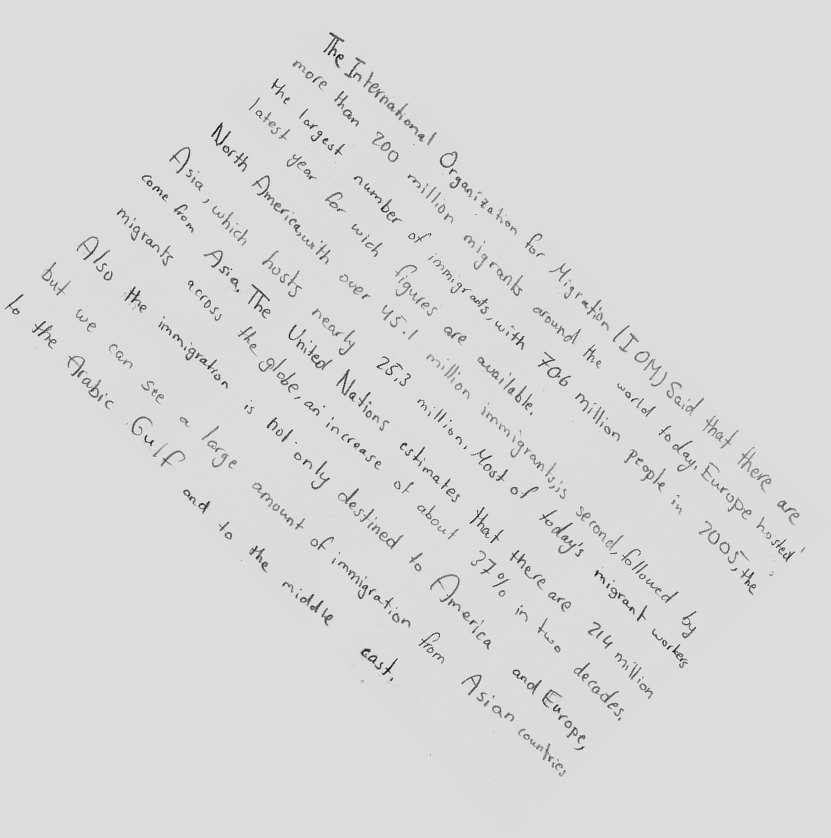 The International Organization for Migration (IOM) Said that there are
more than 200 million migrants around the world today. Europe hosted
the largest number of immigrants, with 706 million people in 2005, the
latest year for wich figures are available.
North America, with over 45.1 million immigrants, is second, followed by
Asia, which hosts nearly 25.3 million. Most of today's migrant workers
come from Asia. The United Nations estimates that there are 214 million
migrants across the globe, an increase of about 37% in two decades.
Also the immigration is not only destined to America and Europe,
but we can see a large amount of immigration from Asian countries
to the Arabic Gulf and to the middle east.